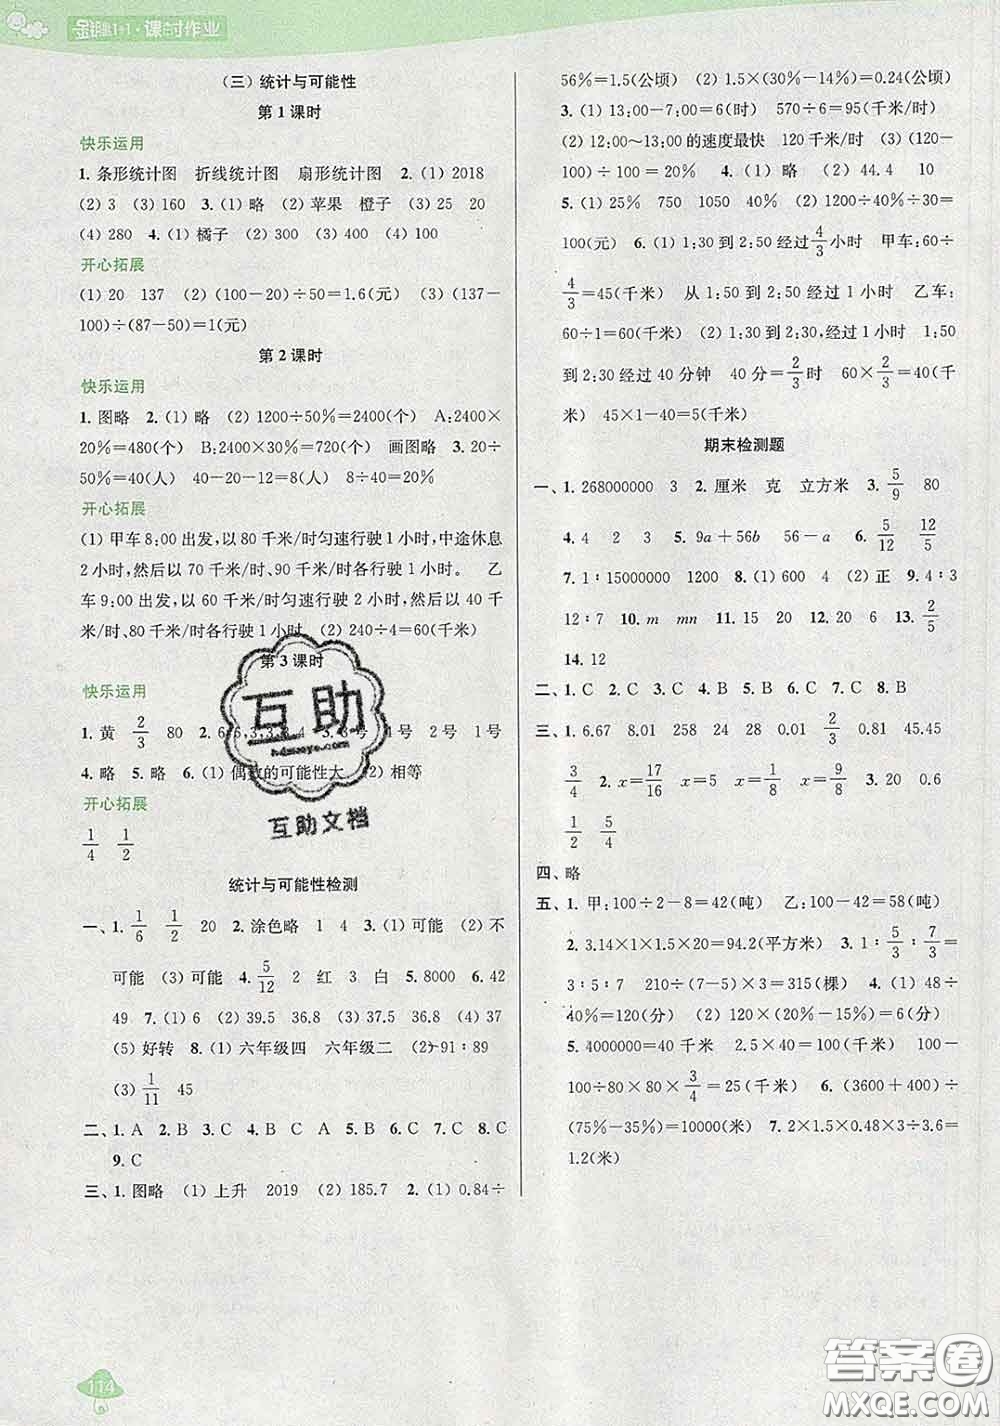 金钥匙1+1·课时作业
(三)统计与可能性
第1课时
快乐运用
1. 条形统计图 折线统计图 扇形统计图 2. (1) 2018
(2) 3 (3) 160 3. (1) 略 (2) 苹果 橙子 (3) 25 20
(4) 280 4. (1) 橘子 (2) 300 (3) 400 (4) 100
开心拓展
(1) 20 137 (2) (100-20)÷50=1.6(元) (3) (137-
100)÷(87-50)=1(元)
第2课时
快乐运用
1. 图略 2. (1) 略 (2) 1200÷50%=2400(个) A:2400×
20%=480(个) B:2400×30%=720(个) 画图略 3. 20÷
50%=40(人) 40-20-12=8(人) 8÷40=20%
开心拓展
(1) 甲车8:00出发,以80千米/时匀速行驶1小时,中途休息
2小时,然后以70千米/时、90千米/时各行驶1小时。 乙
车9:00出发,以60千米/时匀速行驶2小时,然后以40千
米/时、80千米/时各行驶1小时 (2) 240÷4=60(千米)
第3课时
快乐运用
1. 黄 2/3 80 2. 6,6,3,3,3,4 3. 3号 1号 2号 1号
4. 略 5. 略 6. (1) 偶数的可能性大 (2) 相等
开心拓展
1/4 1/2
统计与可能性检测
一、1. 1/6 1/2 20 2. 涂色略 1 4 3. (1) 可能 (2) 不
可能 (3) 可能 4. 5/12 2 红 3 白 5. 8000 6. 42
49 7. (1) 6 (2) 39.5 36.8 (3) 37.5 36.8 (4) 37
(5) 好转 8. (1) 六年级四 六年级二 (2) 91:89
(3) 1/11 45
二、1. A 2. B 3. C 4. B C A 5. B 6. C 7. C 8. C
9. C
三、1. 图略 (1) 上升 2019 (2) 185.7 2. (1) 0.84÷
56%=1.5(公顷) (2) 1.5×(30%-14%)=0.24(公顷)
3. (1) 13:00-7:00=6(时) 570÷6=95(千米/时)
(2) 12:00~13:00的速度最快 120千米/时 (3) (120-
100)÷100=20% 4. (1) 略 (2) 44.4 10
5. (1) 25% 750 1050 40% (2) 1200÷40%÷30=
100(元) 6. (1) 1:30到2:50经过4/3小时 甲车:60÷
4/3=45(千米) 从1:50到2:50经过1小时 乙车:
60÷1=60(千米) (2) 1:30到2:30,经过1小时 1:50
到2:30经过40分钟 40分=2/3时 60×2/3=40(千
米) 45×1-40=5(千米)
期末检测题
一、1. 268000000 3 2. 厘米 克 立方米 3. 5/9 80
4. 4 2 3 5. 9a+56b 56-a 6. 5/12 12/5
7. 1:15000000 1200 8. (1) 600 4 (2) 正 9. 4:3
12:7 10. m mn 11. 15 20 12. 20 6 13. 2/5
14. 12
二、1. C 2. C 3. C 4. B 5. A 6. B 7. C 8. B
三、1. 6.67 8.01 258 24 28 0.01 2/3 0.81 45.45
3/4 2. x=17/16 x=5 x=1/8 x=9/8 3. 20 0.6
1/2 5/4
四、略
五、1. 甲:100÷2-8=42(吨) 乙:100-42=58(吨)
2. 3.14×1×1.5×20=94.2(平方米) 3. 1:5/3:7/3=
3:5:7 210÷(7-5)×3=315(棵) 4. (1) 48÷
40%=120(分) (2) 120×(20%-15%)=6(分)
5. 4000000=40千米 2.5×40=100(千米) 100-
100÷80×80×3/4=25(千米) 6. (3600+400)÷
(75%-35%)=10000(米) 7. 2×1.5×0.48×3÷3.6=
1.2(米)
互助
互助文档
114
答案圈
MXQE.COM